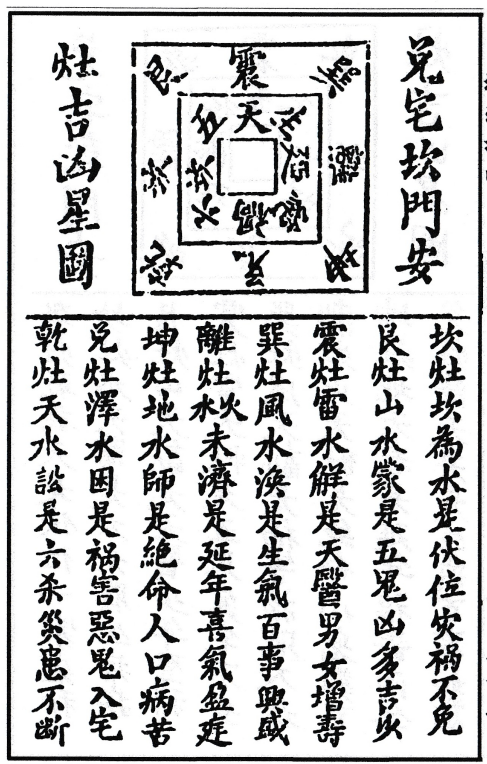 兑宅坎門安
艮 震 巽
五 天 生
坎 伏 延 離
六 禍 絕
乾 兑 坤
灶吉凶星圖
坎灶坎為水是伏位灾禍不免
艮灶山水蒙是五鬼凶多吉少
震灶雷水解是天醫男女增壽
巽灶風水渙是生氣百事興盛
離灶火水未濟是延年喜氣盈庭
坤灶地水師是絕命人口病苦
兑灶澤水困是禍害惡鬼入宅
乾灶天水訟是六杀災患不斷